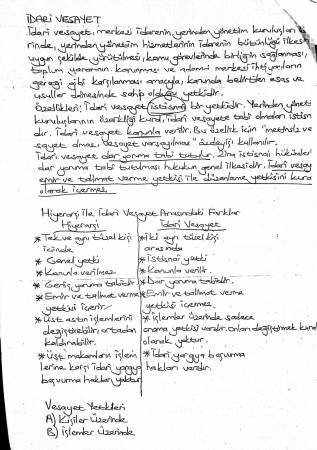 İDARİ VESAYET
İdari vesayet, merkezi idarenin, yerinden yönetim kuruluşları üze-
rinde, yerinden yönetim hizmetlerinin idarenin bütünlüğü ilkesine
uygun şekilde yürütülmesi, kamu görevlerinde birliğin sağlanması,
toplum yararının korunması ve mahalli ihtiyaçların
gereği gibi karşılanması amacıyla, kanunda belirtilen esas ve
usuller dairesinde sahip olduğu yetkidir.
Özellikleri: İdari vesayet istisnai bir yetkidir. Yerinden yöneti
kuruluşlarının özerkliği kural, idari vesayete tabi olmaları istisna
dır. İdari vesayet kanunla verilir. Bu özellik için "metinsiz ve
sayet olmaz. Vesayet varsayılmaz" özdeyişi kullanılır.
İdari vesayet dar yoruma tabi tutulur. Zira istisnai hükümler
dar yoruma tabi tutulması hukukun genel ilkesidir. İdari vesayet
emir ve talimat verme yetkisi ile düzenleme yetkisini kural
olarak içermez.
Hiyerarşi ile İdari Vesayet Arasındaki Farklar
Hiyerarşi İdari Vesayet
* Tek ve aynı tüzel kişi * İki ayrı tüzel kişi
içinde arasında
* Genel yetki * İstisnai yetki
* Kanunla verilmez * Kanunla verilir.
* Geniş yoruma tabidir. * Dar yoruma tabidir.
* Emir ve talimat verme * Emir ve talimat verme
yetkisi içerir. yetkisi içermez.
* Üst astın işlemlerini * İşlemler üzerinde sadece
değiştirebilir, ortadan onama yetkisi vardır. Onları değiştirmek kural
kaldırabilir. olarak yoktur.
* Üst makamların işlem * İdari yargıya başvurma
lerine karşı idari yargıya hakları vardır.
başvurma hakları yoktur.
Vesayet Yetkileri
A) Kişiler Üzerinde
B) İşlemler Üzerinde